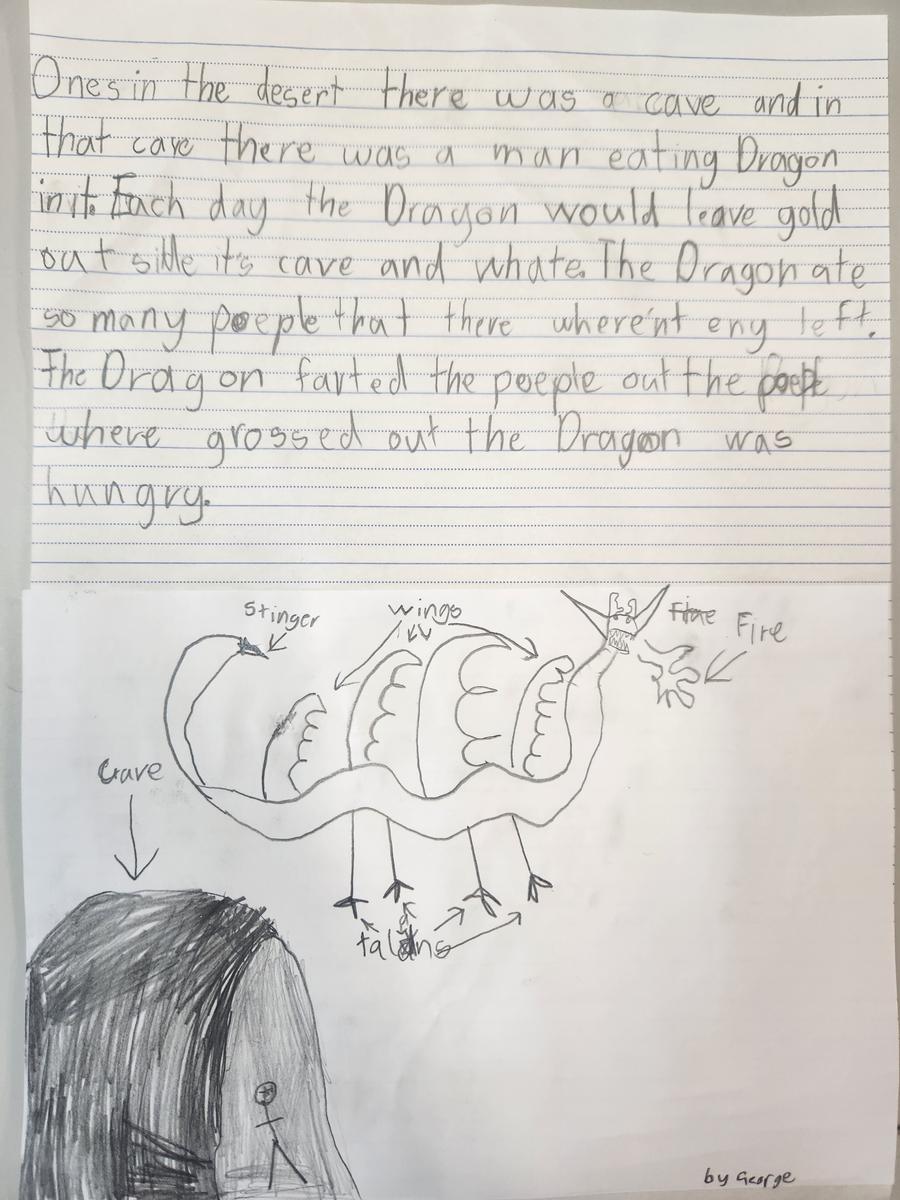 Ones in the desert there was a cave and in
that cave there was a man eating Dragon
in it. Each day the Dragon would leave gold
out side it's cave and whate. The Dragon ate
so many poeple that there where'nt eny left.
The Dragon farted the poeple out the poeple
where grossed out the Dragon was
hungry.
Stinger
wings
Fire
Cave
talons
by George